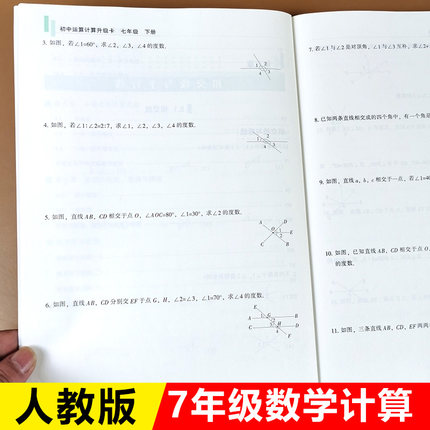 初中运算计算升级卡 七年级 下册
3. 如图, 若∠1=60°, 求∠2、∠3、∠4的度数.
1 2
4 3
4. 如图, 若∠1:∠2=2:7, 求∠1、∠2、∠3、∠4的度数.
5. 如图, 直线AB、CD相交于点O, ∠AOC=80°, ∠1=30°, 求∠2的度数.
A D
O 1 E
2
C B
6. 如图, 直线AB、CD分别交EF于点G、H, ∠2=∠3, ∠1=70°, 求∠4的度数.
E
A 1 G B
C H D
F
7. 若∠1与∠2是对顶角, ∠1与∠3互补, 求∠2+
8. 已知两条直线相交成的四个角中, 有一个角是
9. 如图, 直线a、b、c相交于一点, 若∠1=40
10. 如图, 已知直线AB、CD相交于点O,
的度数.
11. 如图, 三条直线AB、CD、EF两两
人教版 7年级数学计算